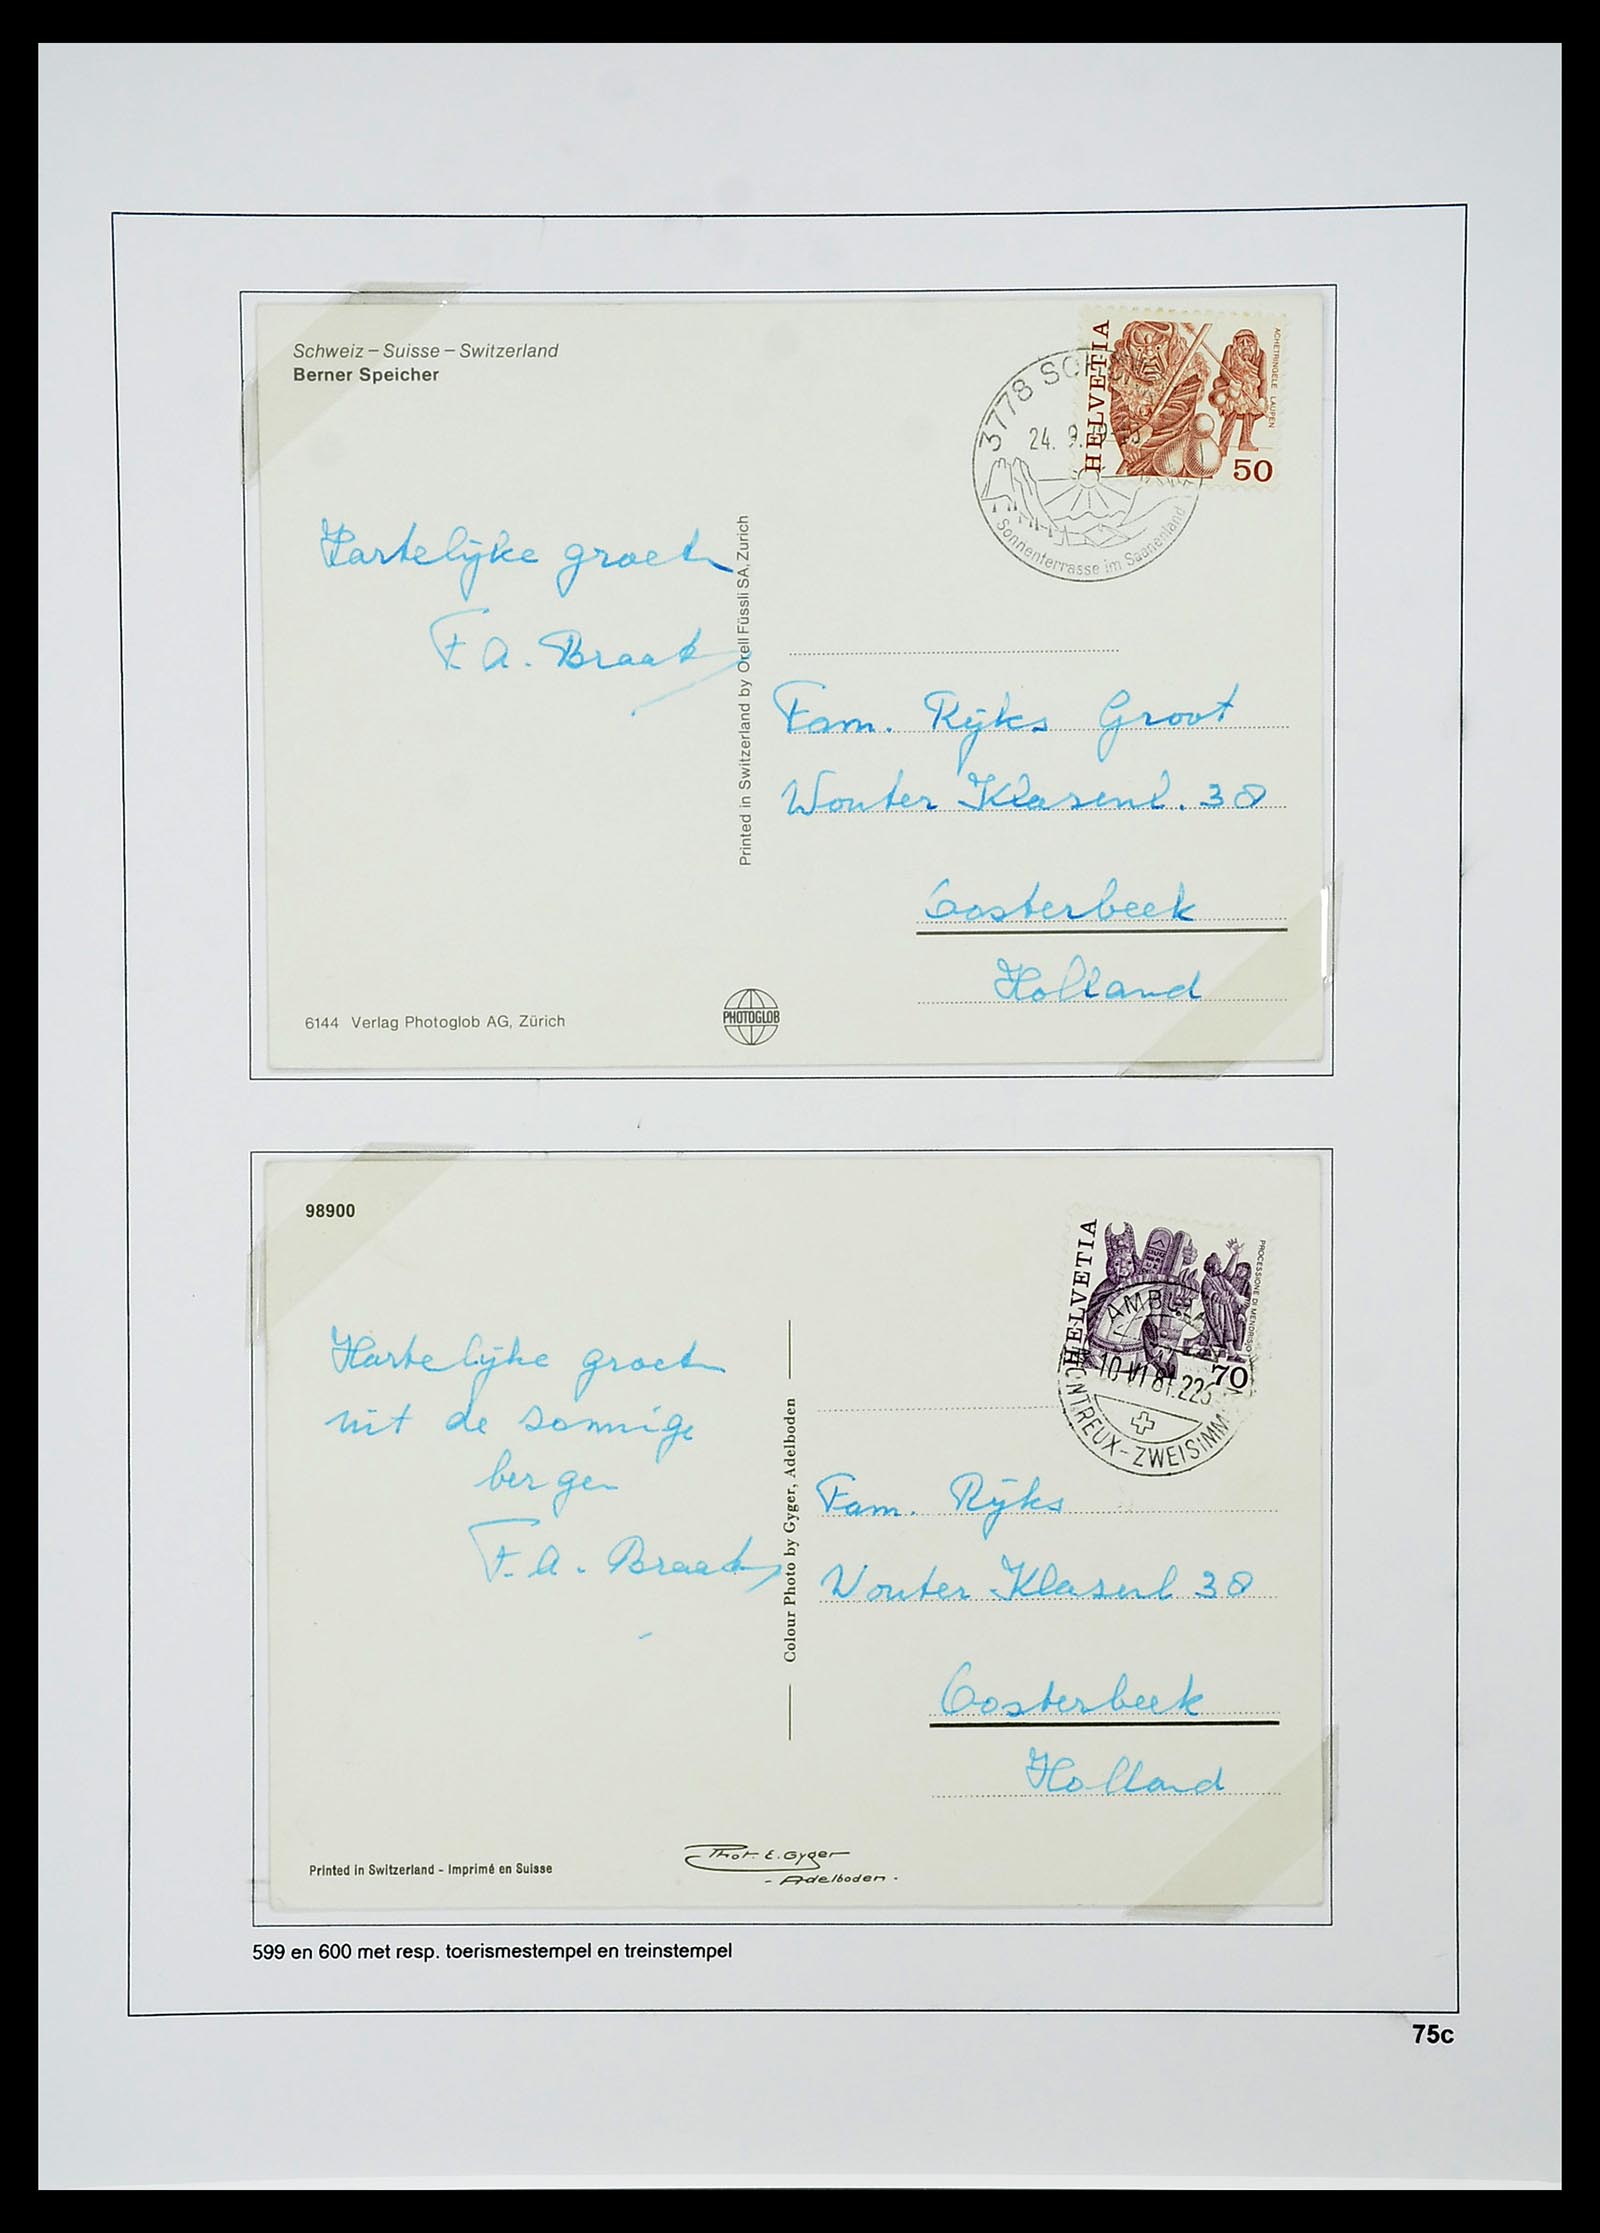 Schweiz – Suisse – Switzerland
Berner Speicher
HELVETIA
ACHETRINGELE LAUFEN
50
3778 SC
24. 9.
Sonnenterrasse im Saanenland
Hartelijke groeten
F. A. Braak
Printed in Switzerland by Orell Füssli SA, Zürich
Fam. Rijks Groot
Wouter Klasenl. 38
Oosterbeek
Holland
6144 Verlag Photoglob AG, Zürich
PHOTOGLOB
98900
HELVETIA
PROCESSIONE DI MENDRISIO
70
AMBULA
10 VI 81. 22
MONTREUX - ZWEISIMM
Hartelijke groeten
uit de zonnige
bergen
F. A. Braak
Colour Photo by Gyger, Adelboden
Fam. Rijks
Wouter Klasenl 38
Oosterbeek
Holland
Printed in Switzerland - Imprimé en Suisse
Phot. E. Gyger
- Adelboden -
599 en 600 met resp. toerismestempel en treinstempel
75c